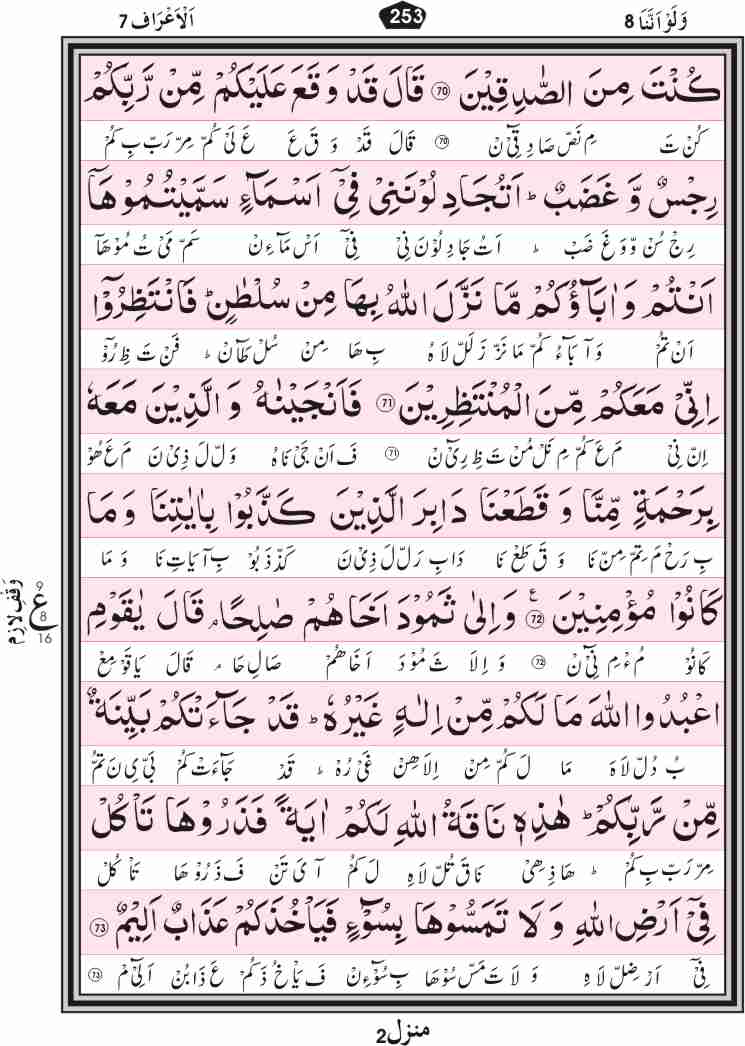 وَلَوْ اَنَّنَا 8
253
اَلْاَعْرَاف 7
كُنْتَ مِنَ الصّٰدِقِيْنَ ۝70 قَالَ قَدْ وَقَعَ عَلَيْكُمْ مِّنْ رَّبِّكُمْ
كُنْ تَ مِ نَصْ صَا دِ قِیْ نَ 70 قَالَ قَدْ وَ قَ عَ عَ لَیْ كُمْ مِرْ رَبْ بِ كُمْ
رِجْسٌ وَّ غَضَبٌ ؕ اَتُجَادِلُوْنَنِیْ فِیْۤ اَسْمَآءٍ سَمَّيْتُمُوْهَاۤ
رِجْ سُنْ وْ وَ غَ ضَبْ ؕ اَ تُ جَا دِ لُوْ نَ نِیْ فِیْۤ اَسْ مَآءِنْ سَمْ مَیْ تُ مُوْ هَاۤ
اَنْتُمْ وَ اٰبَآؤُكُمْ مَّا نَزَّلَ اللّٰهُ بِهَا مِنْ سُلْطٰنٍ ؕ فَانْتَظِرُوْۤا
اَنْ تُمْ وَ آ بَآءُ كُمْ مَا نَزْ زَ لَلْ لَا هُ بِ هَا مِنْ سُلْ طَانْ ؕ فَنْ تَ ظِ رُوْۤ
اِنِّیْ مَعَكُمْ مِّنَ الْمُنْتَظِرِيْنَ ۝71 فَاَنْجَيْنٰهُ وَ الَّذِيْنَ مَعَهٗ
اِنْ نِیْ مَ عَ كُمْ مِ نَلْ مُنْ تَ ظِ رِیْ نَ 71 فَ اَنْ جَیْ نَا هُ وَلْ لَ ذِیْ نَ مَ عَ هُوْ
بِرَحْمَةٍ مِّنَّا وَ قَطَعْنَا دَابِرَ الَّذِيْنَ كَذَّبُوْا بِاٰيٰتِنَا وَ مَا
بِ رَحْ مَ تِمْ مِنْ نَا وَ قَ طَعْ نَا دَا بِ رَلْ لَ ذِیْ نَ كَذْ ذَ بُوْ بِ آ يَا تِ نَا وَ مَا
كَانُوْا مُؤْمِنِيْنَ ۝72 ع وَ اِلٰی ثَمُوْدَ اَخَاهُمْ صٰلِحًا ۘ قَالَ يٰقَوْمِ
كَانُوْ مُءْ مِ نِیْ نَ 72 وَ اِلَا ثَ مُوْ دَ اَ خَا هُمْ صَا لِ حَا ۘ قَالَ يَا قَوْ مِعْ
اعْبُدُوا اللّٰهَ مَا لَكُمْ مِّنْ اِلٰهٍ غَيْرُهٗ ؕ قَدْ جَآءَتْكُمْ بَيِّنَةٌ
بُ دُلْ لَا هَ مَا لَ كُمْ مِنْ اِلَا هِنْ غَیْ رُهْ ؕ قَدْ جَآءَتْ كُمْ بَیْ یِ نَ تُمْ
مِّنْ رَّبِّكُمْ ؕ هٰذِهٖ نَاقَةُ اللّٰهِ لَكُمْ اٰيَةً فَذَرُوْهَا تَاْكُلْ
مِرْ رَبْ بِ كُمْ ؕ هَا ذِ هِیْ نَا قَ تُلْ لَا هِ لَ كُمْ آ یَ تَنْ فَ ذَ رُوْ هَا تَاْ كُلْ
فِیْۤ اَرْضِ اللّٰهِ وَ لَا تَمَسُّوْهَا بِسُوْٓءٍ فَيَاْخُذَكُمْ عَذَابٌ اَلِيْمٌ ۝73
فِیْۤ اَرْ ضِلْ لَا هِ وَ لَا تَ مَسْ سُوْ هَا بِ سُوْٓءِنْ فَ يَاْ خُ ذَ كُمْ عَ ذَا بُنْ اَ لِیْ مْ 73
وقف لازم
9
ع
8
16
منزل2